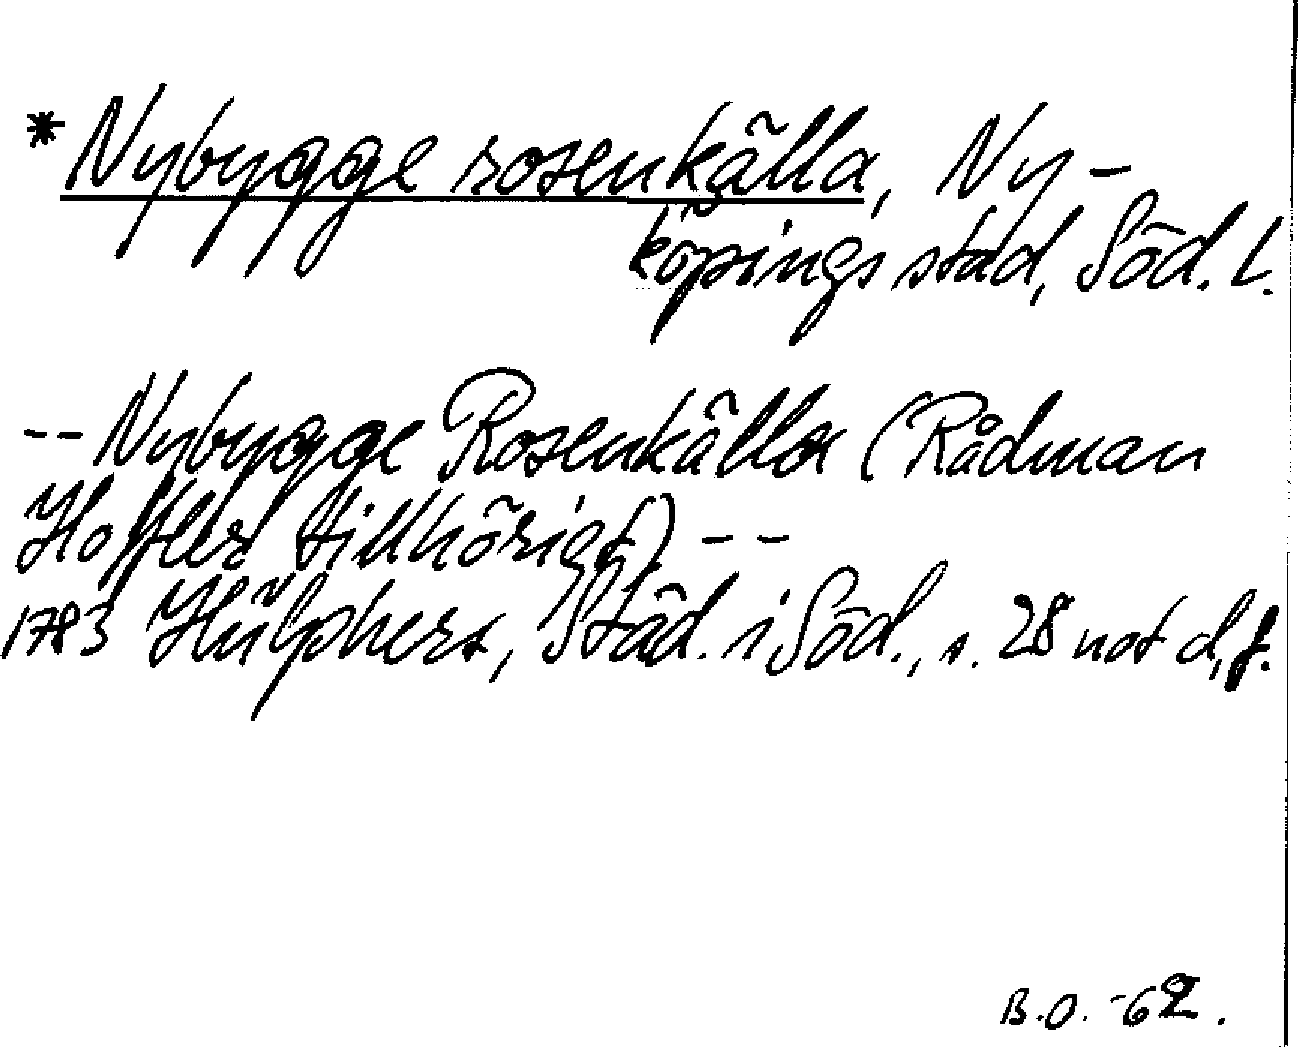 *Nybygge rosenkälla, Ny-
köpings stad, Söd. L.
--Nybygge Rosenkälla (Rådman
Hoffler tillhörigt) --
1783 Hülphers, Städ. i Söd., s. 28 not d, f.
B.O. -62.